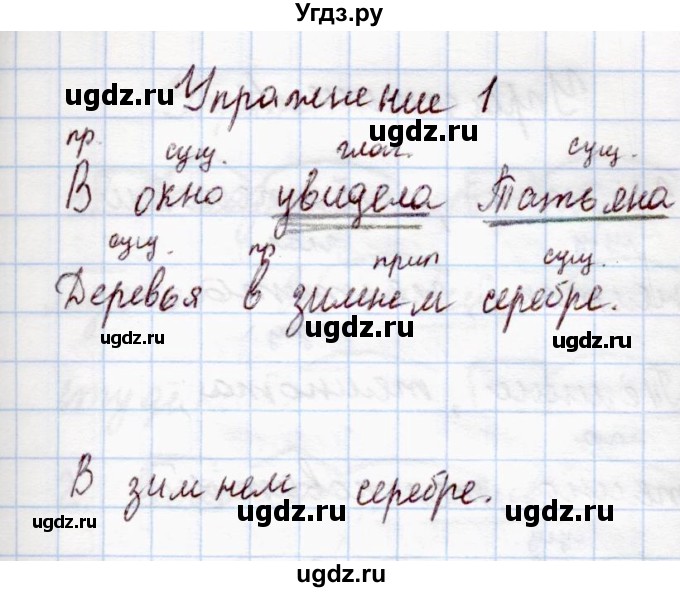 Угдз.ру
ugdz.ru
Упражнение 1
ugdz.ru
пр. сущ. глаг. сущ.
В окно увидела Татьяна
ugdz.ru
сущ. пр. прил сущ.
Деревья в зимнем серебре.
ugdz.ru ugdz.ru ugdz.ru
В зимнем серебре.
ugdz.ru ugdz.ru ugdz.ru
ugdz.ru